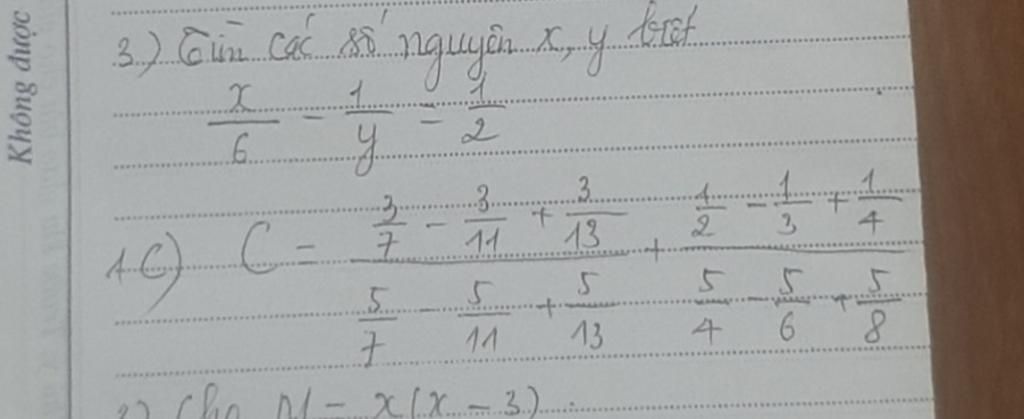 Không được
3) Tìm các số nguyên x, y biết
x/6 - 1/y = 1/2
1.C) C = (3/7 - 3/11 + 3/13)/(5/7 - 5/11 + 5/13) + (1/2 - 1/3 + 1/4)/(5/4 - 5/6 + 5/8)
2) Cho M = x(x - 3)